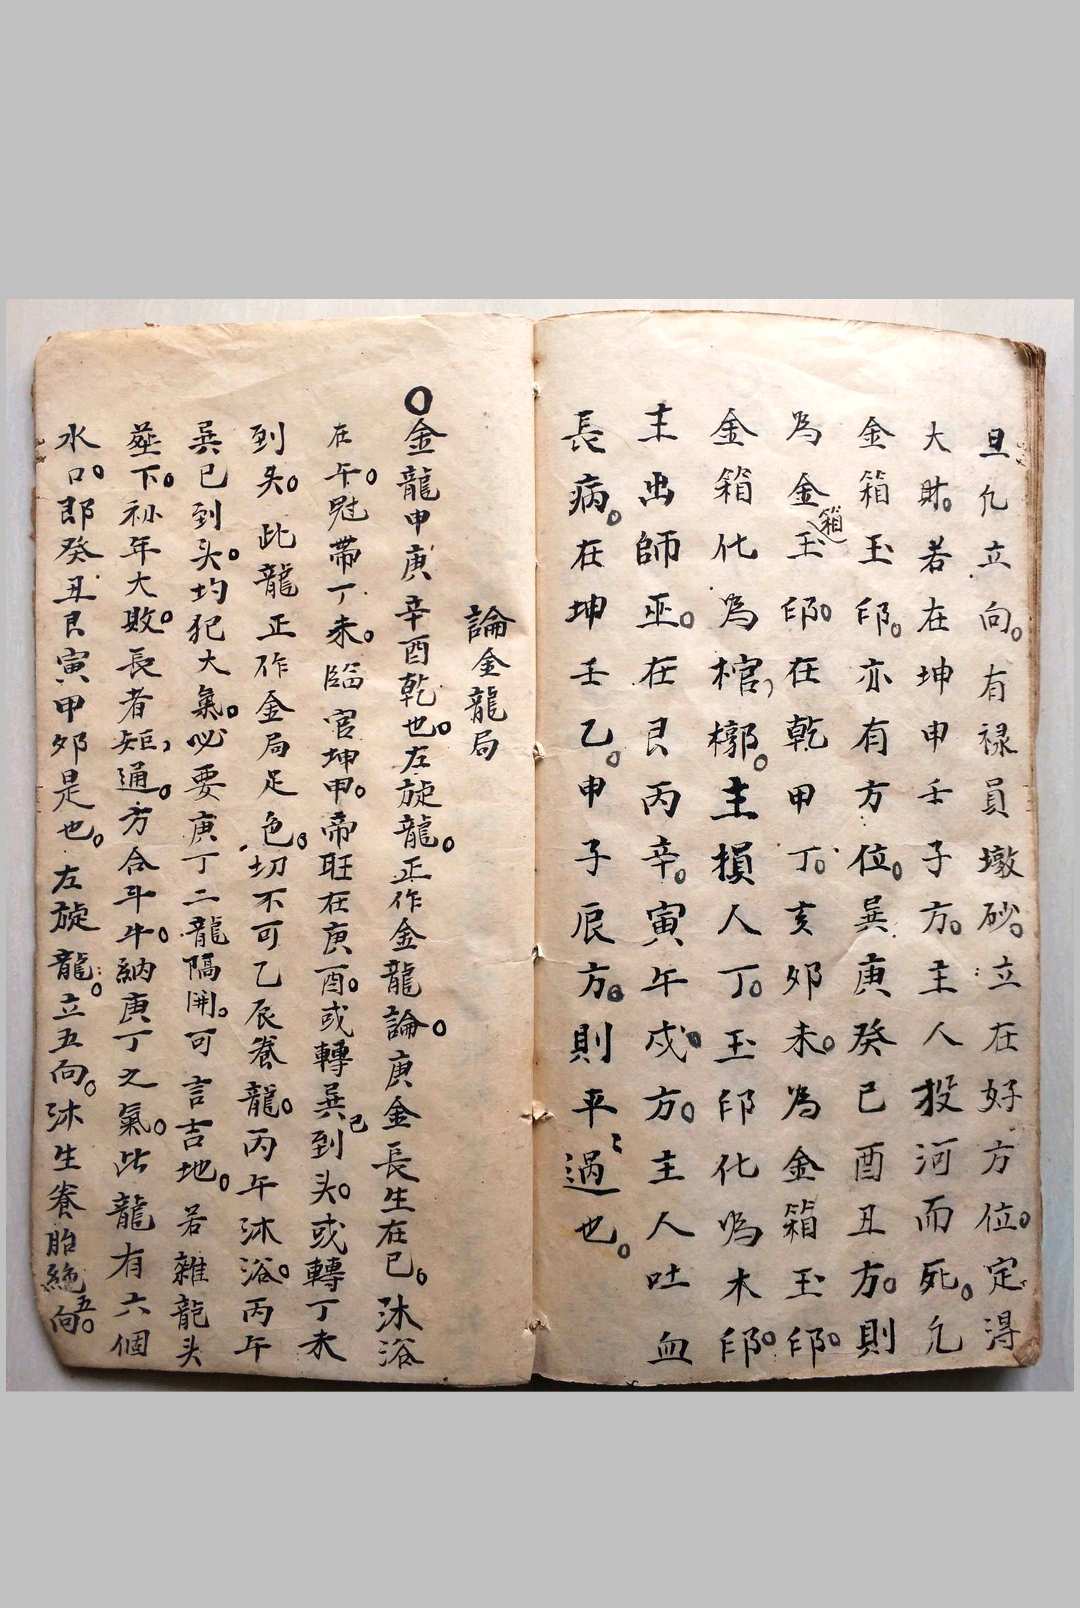 旦凢立向。有禄員墩砂。立在好方位。定得
大財。若在坤申壬子方。主人投河而死。凢
金箱玉印。亦有方位。巽庚癸巳酉丑方。則
為金箱玉印。在乾甲丁。亥卯未。為金箱玉印。
金箱化為棺槨。主損人丁。玉印化為木印。
主出師巫。在艮丙辛。寅午戍方。主人吐血
長病。在坤壬乙。申子辰方。則平過也。
論金龍局
○金龍申庚辛酉乾也。左旋龍。正作金龍論。庚金長生在巳。沐浴
在午。冠帶丁未。臨官坤甲。帝旺在庚酉。或轉巽巳到头。或轉丁未
到头。此龍正作金局足色。切不可乙辰养龍。丙午沐浴。丙午
巽巳到头。均犯大氣。必要庚丁二龍隔開。可言吉地。若雜龍头
塟下。初年大敗。長者矩通。方合斗牛。納庚丁之氣。此龍有六個
水口。即癸丑艮寅甲卯是也。左旋龍。立五向。沐生养胎絶五向。